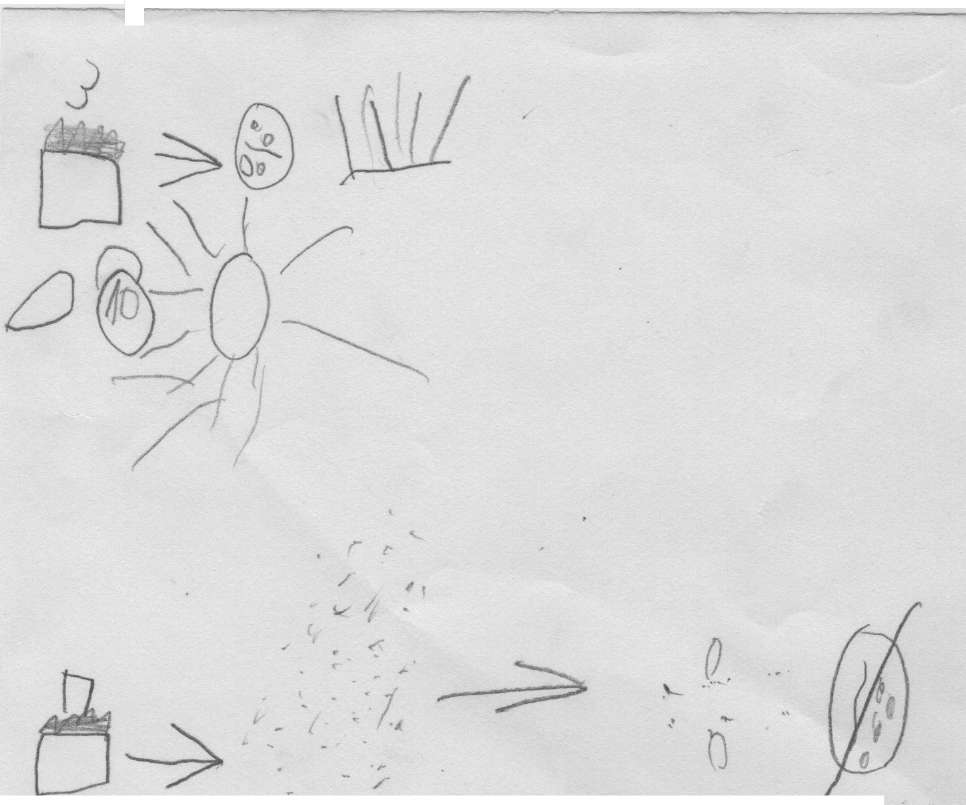 3
10